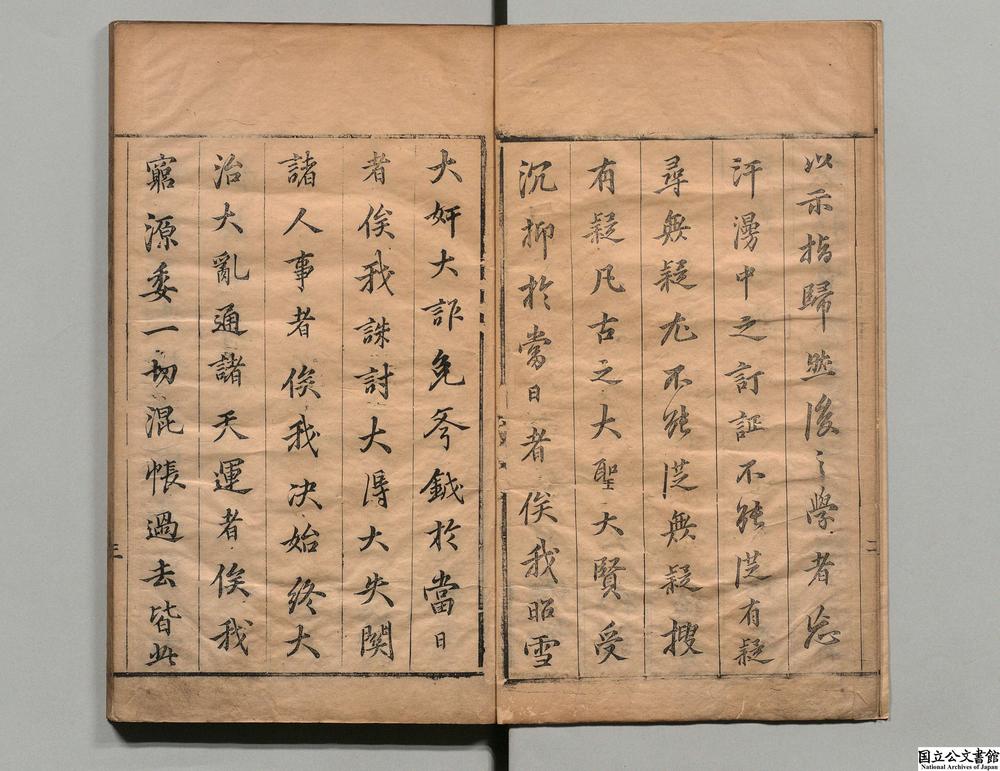 以示指歸然後之學者忘
汗漫中之訂証不能從有疑
尋無疑尤不能從無疑搜
有疑凡古之大聖大賢受
沉抑於當日者俟我昭雪
二
大奸大詐免斧鉞於當日
者俟我誅討大得大失関
諸人事者俟我决始終大
治大亂通諸天運者俟我
窮源委一切混帳過去皆此
三
国立公文書館
National Archives of Japan